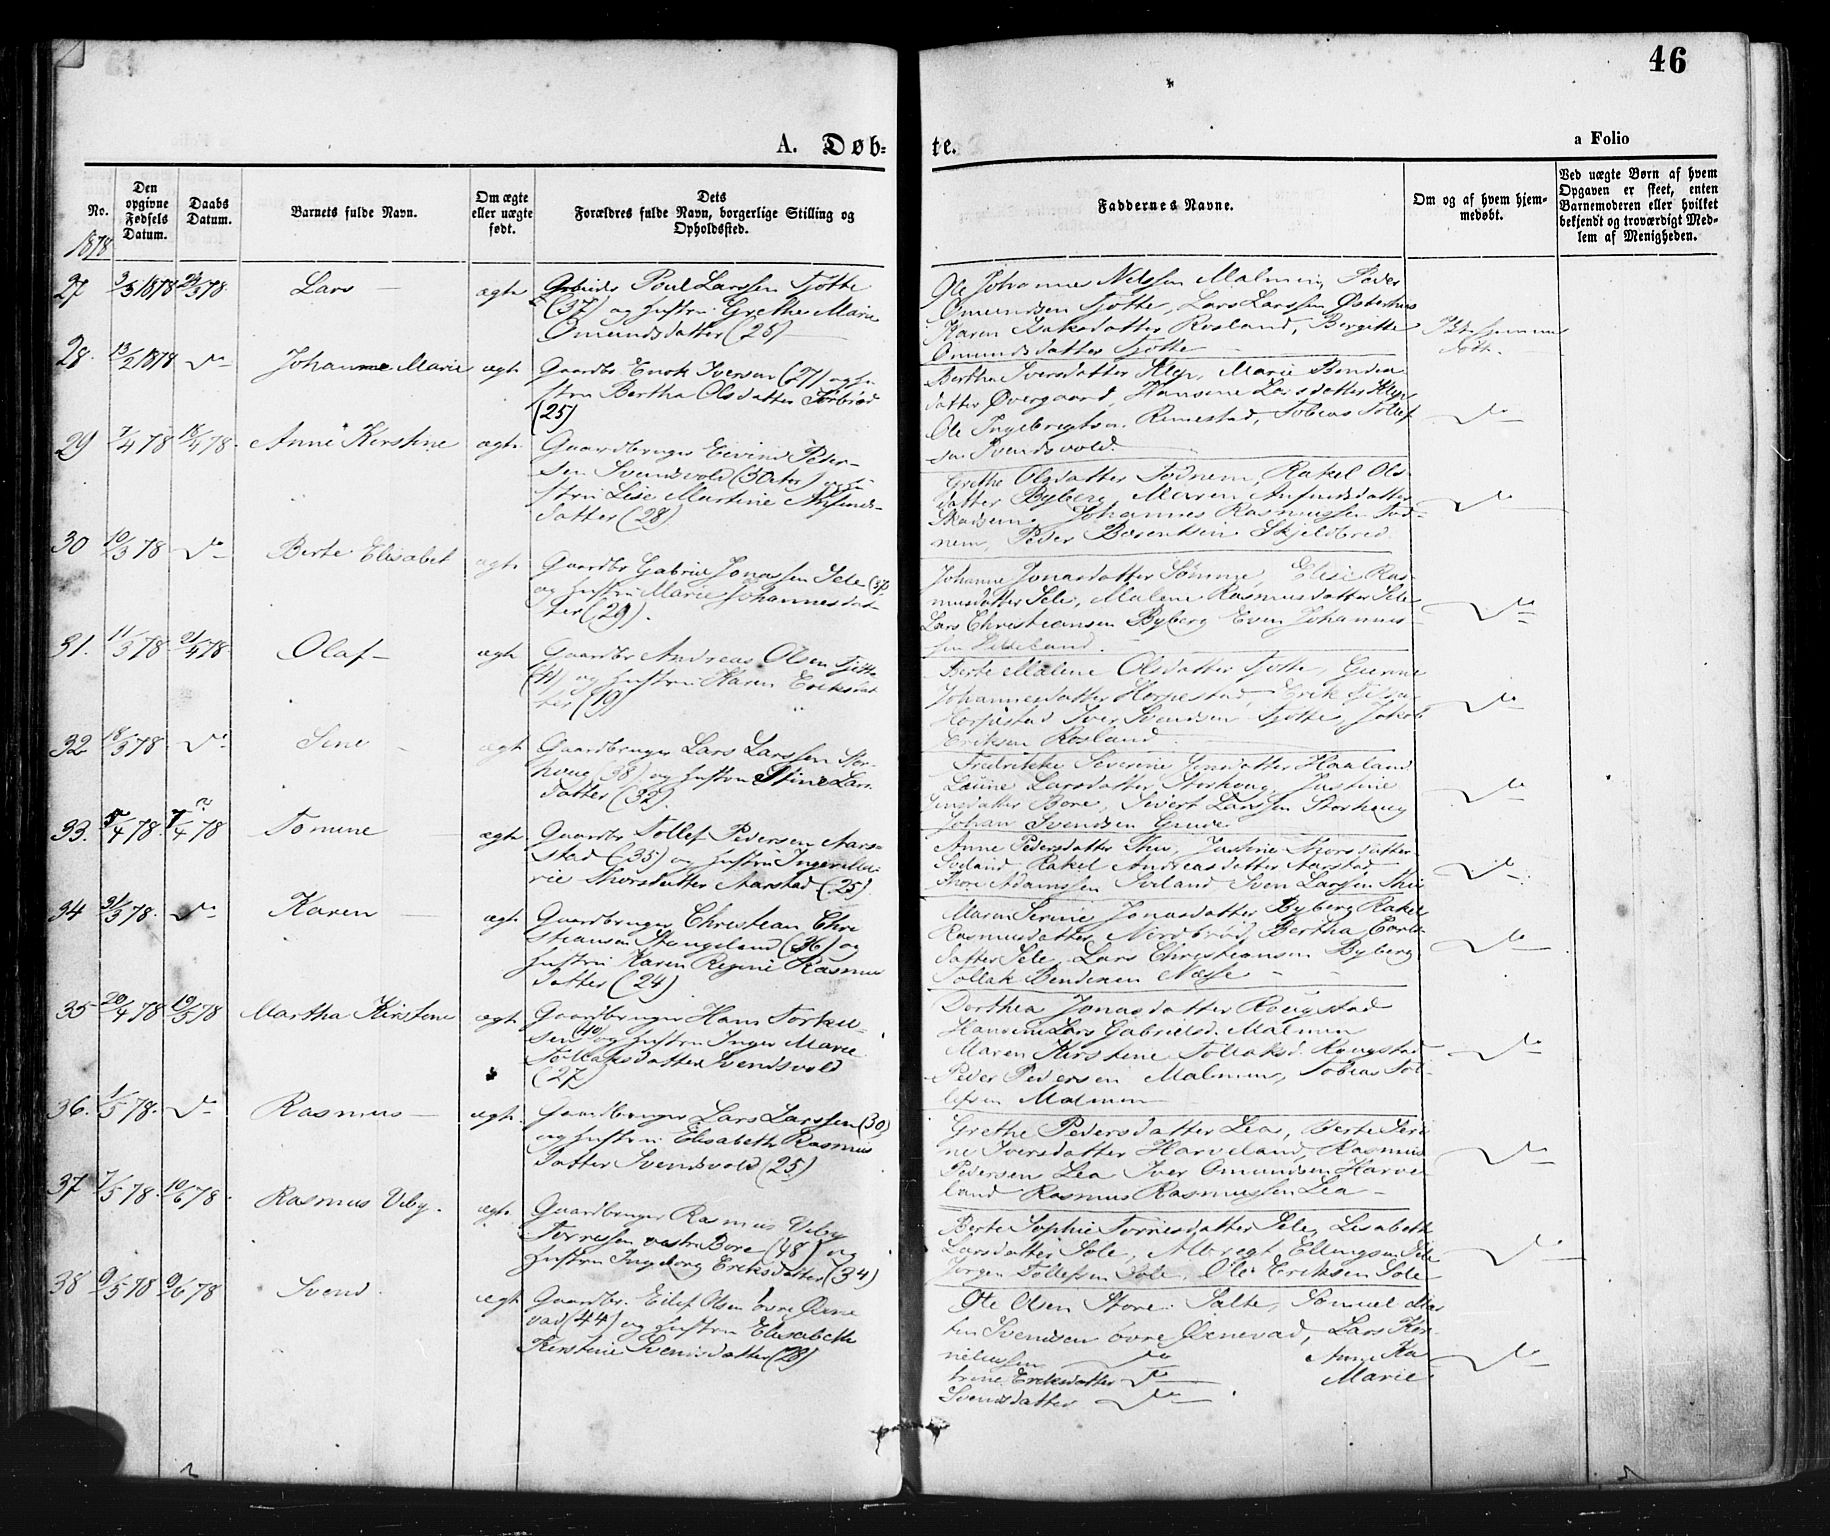 46
A. Døb-
te.
a Folio
No.
Den opgivne Fødsels Datum.
Daabs Datum.
Barnets fulde Navn.
Om ægte eller uægte født.
Dets
Forældres fulde Navn, borgerlige Stilling og
Opholdssted.
Faddernes Navne.
Om og af hvem hjem-
medøbt.
Ved uægte Børn af hvem
Opgaven er skeet, enten
Barnemoderen eller hvilket
bekjendt og troværdigt Med-
lem af Menigheden.
1878
27 Lars ægte Poul Larssen Tjøtte
(37) og Hustru Grethe Marie
Omundsdatter (25)
Ole Johannes Nilssen Malmin, Peder
Omundsen Tjøtte, Lars Larssen
Karen Isaksdatter Rosland, Bergitte
Omundsdatter Tjøtte
28. 13/2 1878 Do Johanne Marie ægte Gaardbr Enok Iversen (27) og Hu
stru Bertha Olsdatter
(25)
Bertha Iversdatter Klep, Marie
datter Øvergaard, Hansine Larsdatter Klep
Ole Ingebregtsen Rimestad, Tobias Tollef
sen Svendsvold.
Do
29 7/4 78 Anne Kirstine ægte Gaardbruger Eivind Peter-
sen Svendsvold (30 aar) og Hu
stru Lise Martine
datter (28)
Grethe Olsdatter Todnem, Rakel Ols-
datter Byberg, Maren
Johannes Rasmussen Tod-
nem, Peder Berentsen
Do
30 10/3 78 Do Berte Elisabet ægte Gaardbr Gabriel Jonassen Sele
og Hustru Marie Johannesdat-
ter (29).
Johanne Jonasdatter Sømme, Elise Ras-
musdatter Sele, Malene Rasmusdatter Sele
Lars Christiansen Byberg Even Johannes-
sen
Do
31. 11/3 78 Olaf ægte Gaardbr Andreas Olsen Tjøtte
(41) og Hustru Karen Eriksdat
ter (19)
Berte Malene Olsdatter Tjøtte,
Johannesdatter Horpestad, Erik
Horpestad Iver Svendsen Tjøtte, Jakob
Eriksen Rosland
Do
32 18/3 78 Do Sine ægte Gaardbruger Lars Larssen Stor-
houg (38) og Hustru Stine Lars
datter (32)
Fredrikke Severine Haaland
Larsdatter Storhoug, Justine
Jensdatter Bore, Sivert Larssen Storhoug
Johan Svendsen Grude
Do
33. 5/4 78 7/4 78 Tomine ægte Gaardbr Tollef Pedersen Aar-
stad (35) og Hustru Inger Ma
rie Thorsdatter Aarstad (25)
Anne Pedersdatter Thu, Justine Thorsdatter
Soeland Rakel Andreasdatter Aarstad
Thore Adamssen Soeland Sven Larssen Thu
Do
34 31/3 78. Do Karen ægte Gaardbruger Christian Chri
stiansen Stangeland (36) og
Hustru Karen Regine Rasmus
datter (24)
Maren Serine Jonasdatter Byberg Rakel
Rasmusdatter Nordbrød, Bertha Carls
datter Sele, Lars Christiansen Byberg
Tollak Bendixen Næsse
Do
35 20/4 78 19/5 78 Martha Kirstine ægte Gaardbruger Hans Torkil-
sen (40) og Hustru Inger Marie
Tollaksdatter Svendsvold
(27)
Dorthea Jonasdatter Rougstad
Hansine Lars Gabrielsd. Malmin
Maren Kirstine Tollaksd. Rougstad
Peder Pedersen Malmin, Tobias Tol-
lefsen Malmin
Do
36. 1/5 78. Do Rasmus ægte Gaardbruger Lars Larssen (30)
og Hustru Elisabeth Rasmus
datter Svendsvold (25)
Grethe Pedersdatter Lea, Berte Seri
ne Iversdatter Harveland, Rasmus
Pedersen Lea Iver Omundsen Harve-
land Rasmus Rasmussen Lea
Do
37 7/5 78. 10/6 78 Rasmus Viby. ægte Gaardbruger Rasmus Viby
Torressen vestre Bore (48) og
Hustru Ingeborg Eriksdatter (34)
Berte Sophie Torresdatter Sele, Lisabeth
Larsdatter Sole, Albregt Ellingsen Sele
Jørgen Tollefsen Sole, Ole Eriksen Sole
Do
38 9/5 78 9/6 78 Svend. ægte Gaardbr. Eilef Olsen øvre Ørne
vad (44) og Hustru Elisabeth
Kirstine Svendsdatter (28)
Ole Olsen Store Salte, Samuel Mar
tin Svendsen øvre Ørnevad, Lars Kor-
neliussen Do Anne Ka
trine Eriksdatter Do Marie
Svendsdatter Do
Do